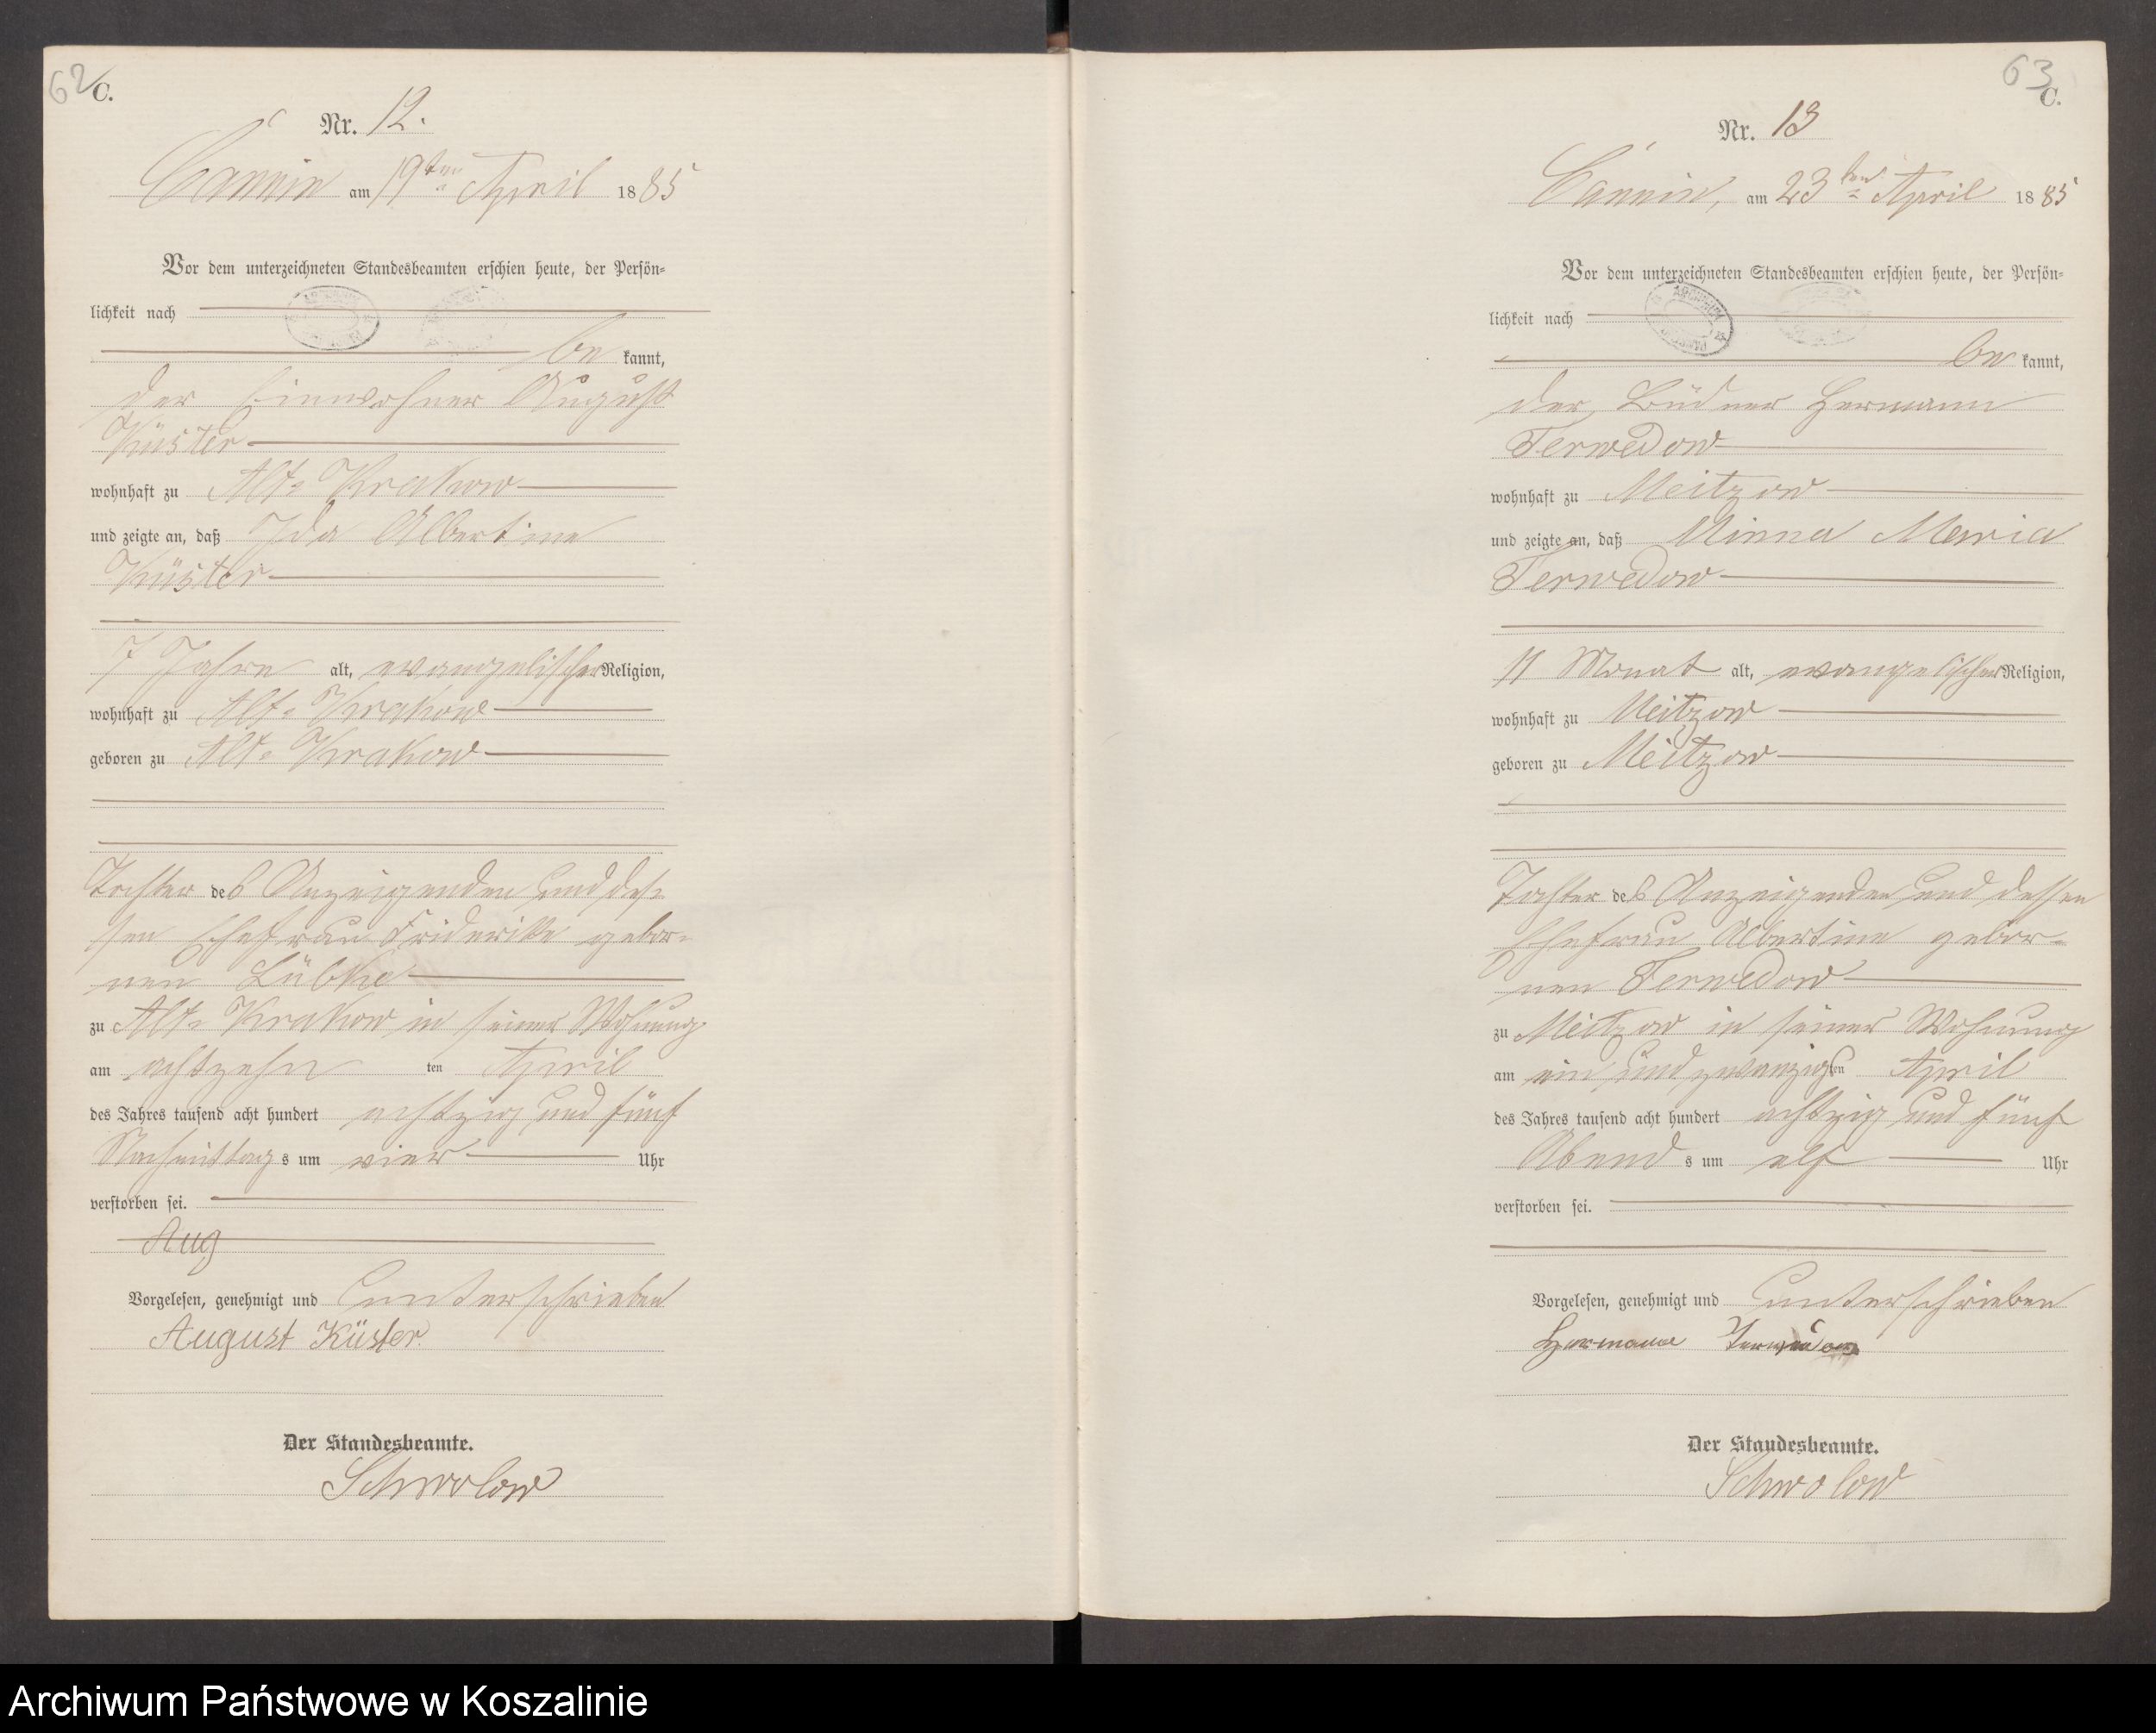 62
C.
Nr. 12.
Cannin am 19ten April 1885
Vor dem unterzeichneten Standesbeamten erschien heute, der Persön-
lichkeit nach
be kannt,
der Einwohner August
Küster
wohnhaft zu Alt-Krakow
und zeigte an, daß Ida Albertine
Küster
7 Jahre alt, evangelischer Religion,
wohnhaft zu Alt-Krakow
geboren zu Alt-Krakow
Tochter des Anzeigenden und des-
sen Ehefrau Friderikke gebor-
nen Lübke
zu Alt-Krakow in seiner Wohnung
am achtzehn ten April
des Jahres tausend acht hundert achtzig und fünf
Nachmittags um vier Uhr
verstorben sei.
Aug
Vorgelesen, genehmigt und unterschrieben
August Küster.
Der Standesbeamte.
Schwolow
63
C.
Nr. 13
Cannin, am 23ten April 1885
Vor dem unterzeichneten Standesbeamten erschien heute, der Persön-
lichkeit nach
ARCHIWUM
be kannt,
der Büdner Hermann
Ferwedow
wohnhaft zu Meitzow
und zeigte an, daß Minna Maria
Ferwedow
11 Monat alt, evangelischer Religion,
wohnhaft zu Meitzow
geboren zu Meitzow
Tochter des Anzeigenden und dessen
Ehefrau Albertine gebor-
nen Ferwedow
zu Meitzow in seiner Wohnung
am ein und zwanzigten April
des Jahres tausend acht hundert achtzig und fünf
Abends um elf Uhr
verstorben sei.
Vorgelesen, genehmigt und unterschrieben
Hermann
Der Standesbeamte.
Schwolow
Archiwum Państwowe w Koszalinie